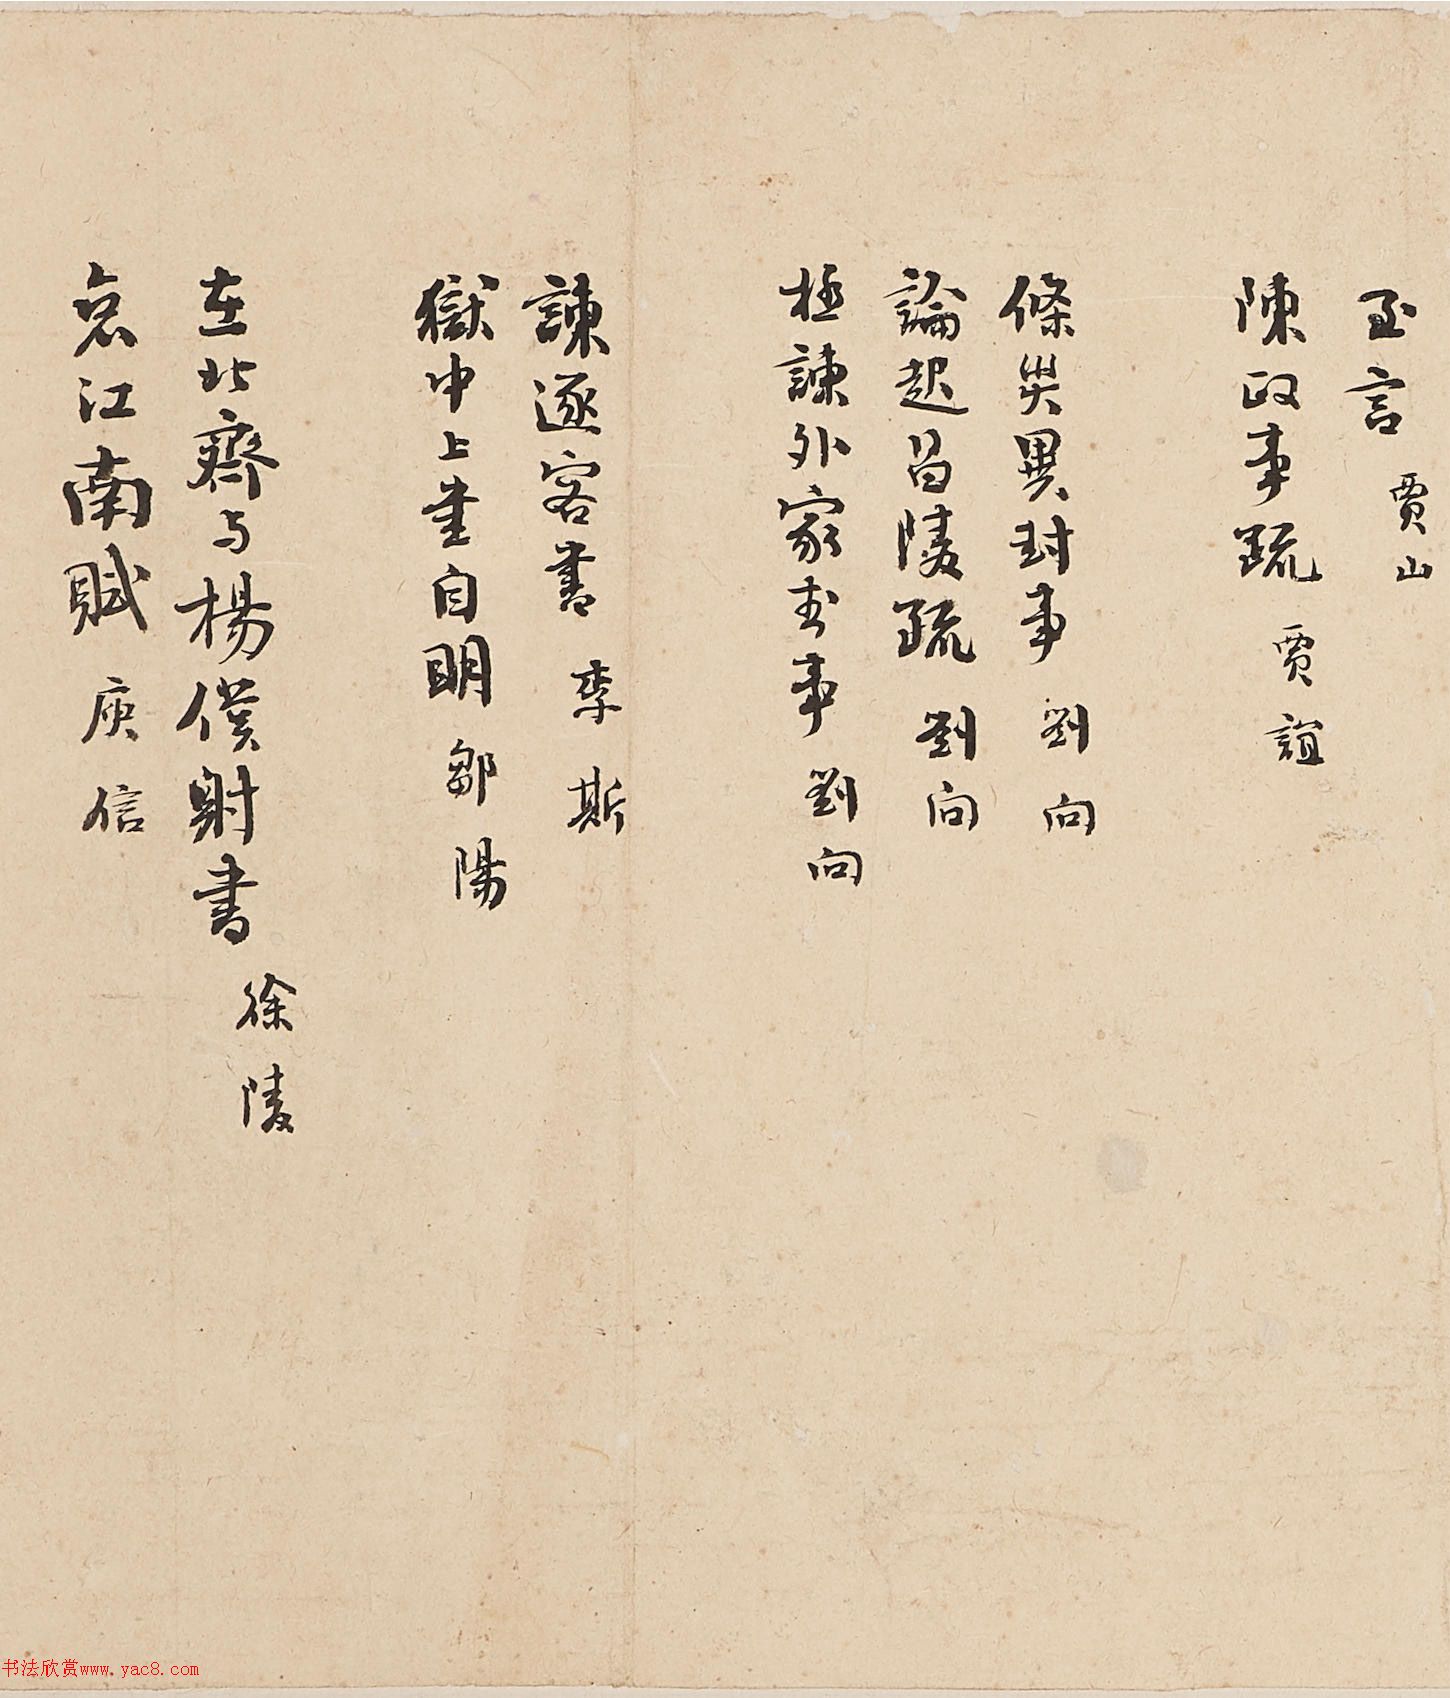 至言 賈山
陳政事疏 賈誼
條災異封事 劉向
論起昌陵疏 劉向
極諫外家封事 劉向
諫逐客書 李斯
獄中上書自明 鄒陽
在北齊与楊僕射書 徐陵
哀江南賦 庾信
书法欣赏www.yac8.com